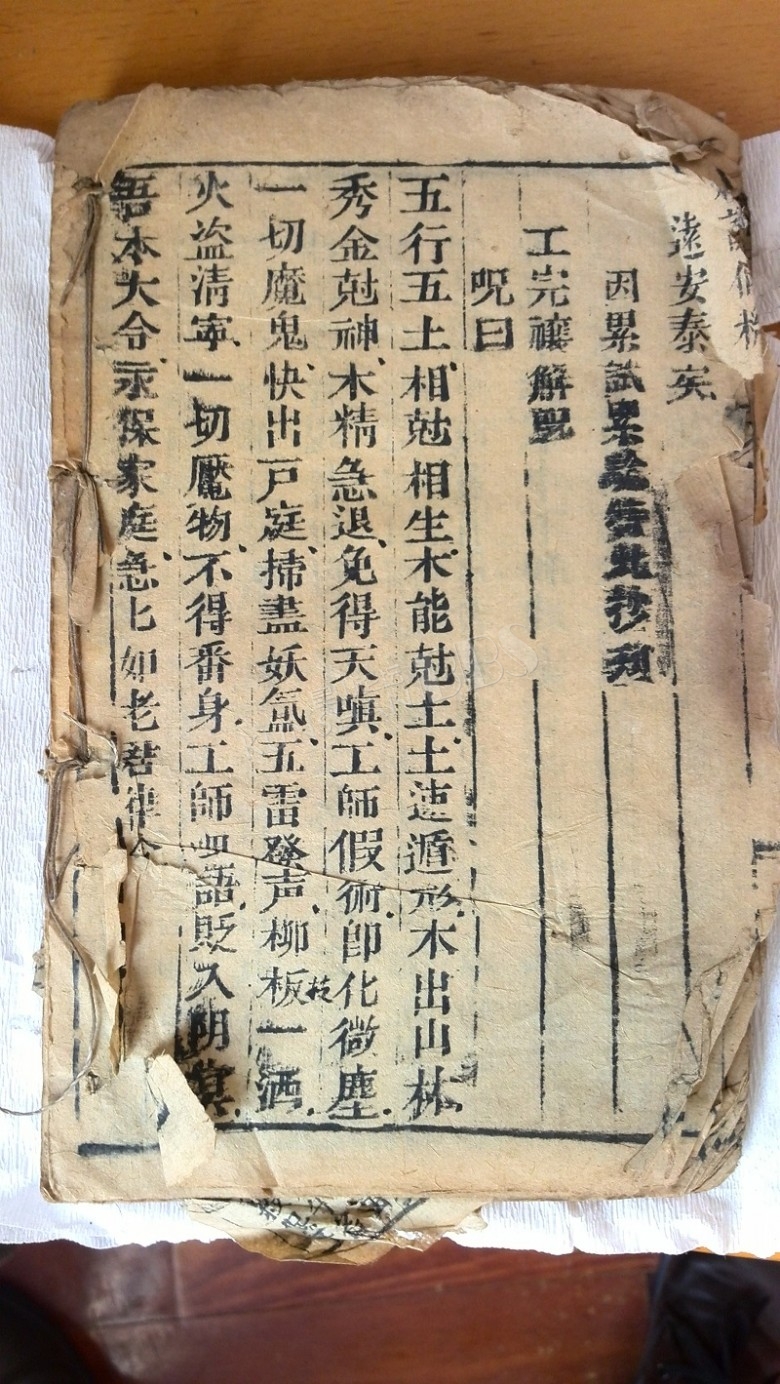 遠安泰矣
因累試累驗告此抄刻
工完禳解
呪曰
五行五土相尅相生木能尅土土速遁形木出山林
秀金尅神木精急退免得天嗔工師假術即化微塵
一切魔鬼快出戸庭掃盡妖氣五雷發声柳板一洒
枝
火盗清寧一切魘物不得番身工師語貶入阴
吾本大令永保家庭急匕如老君律令